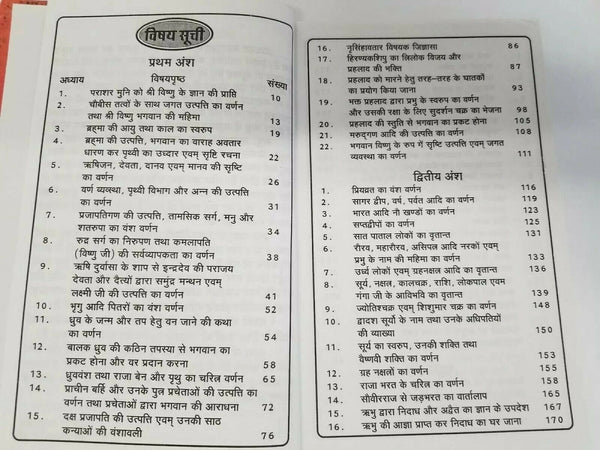 विषय सूची
प्रथम अंश
अध्याय विषयपृष्ठ संख्या
1. पराशर मुनि को श्री विष्णु के ज्ञान की प्राप्ति 10
2. चौबीस तत्वों के साथ जगत उत्पत्ति का वर्णन
तथा श्री विष्णु भगवान की महिमा 13
3. ब्रह्मा की आयु तथा काल का स्वरुप 19
4. ब्रह्मा की उत्पत्ति, भगवान का वाराह अवतार
धारण कर पृथ्वी का उध्दार एवम् सृष्टि रचना 22
5. ऋषिजन, देवता, दानव एवम् मानव की सृष्टि
का वर्णन 26
6. वर्ण व्यवस्था, पृथ्वी विभाग और अन्न की उत्पत्ति
का वर्णन 31
7. प्रजापतिगण की उत्पत्ति, तामसिक सर्ग, मनु और
शतरुपा का वंश वर्णन 34
8. रुद्र सर्ग का निरुपण तथा कमलापति
(विष्णु जी) की सर्वव्यापकता का वर्णन 38
9. ऋषि दुर्वासा के शाप से इन्द्रदेव की पराजय
देवता और दैत्यों द्वारा समुंद्र मन्थन एवम्
लक्ष्मी जी की उत्पत्ति का वर्णन 41
10. भृगु आदि पितरों का वंश वर्णन 52
11. ध्रुव के जन्म और तप हेतु वन जाने की कथा
का वर्णन 54
12. बालक ध्रुव की कठिन तपस्या से भगवान का
प्रकट होना और वर प्रदान करना 58
13. ध्रुववंश तथा राजा बेन और पृथु का चरित्र वर्णन 65
14. प्राचीन बर्हि और उनके पुत्र प्रचेताओं की उत्पत्ति का
वर्णन तथा प्रचेताओं द्वारा भगवान की आराधना 72
15. दक्ष प्रजापति की उत्पत्ति एवम् उनकी साठ
कन्याओं की वंशावली 76
16. नृसिंहावतार विषयक जिज्ञासा 86
17. हिरण्यकशिपु का त्रिलोक विजय और
प्रहलाद की भक्ति 87
18. प्रहलाद को मारने हेतु तरह-तरह के घातकों
का प्रयोग किया जाना 93
19. भक्त प्रहलाद द्वारा प्रभु के स्वरुप का वर्णन
और उसकी रक्षा के लिए सुदर्शन चक्र का भेजना 98
20. प्रहलाद की स्तुति से भगवान का प्रकट होना 105
21. मरुदगण आदि की उत्पत्ति का वर्णन 108
22. भगवान विष्णु के रुप में सृष्टि उत्पत्ति एवम् जगत
व्यवस्था का वर्णन 111
द्वितीय अंश
1. प्रियव्रत का वंश वर्णन 116
2. सागर द्वीप, वर्ष, पर्वत आदि का वर्णन 119
3. भारत आदि नौ खण्डों का वर्णन 123
4. सप्तद्वीपों का वर्णन 125
5. सात पाताल लोकों का वृतान्त 131
6. रौरव, महारौरव, असिपत्र आदि नरकों एवम्
प्रभु के नाम की महिमा का वर्णन 133
7. उर्ध्व लोकों एवम् ग्रहनक्षत्र आदि का वृतान्त 136
8. सूर्य, नक्षत्र, कालचक्र, राशि, लोकपाल एवम्
गंगा जी के आविर्भाव का वर्णन 139
9. ज्योतिश्चक्र एवम् शिशुमार चक्र का वर्णन 148
10. द्वादश सूर्यो के नाम तथा उनके अधिपतियों
की व्याख्या 150
11. सूर्य का स्वरुप, उनकी शक्ति तथा
वैष्णवी शक्ति का वर्णन 153
12. ग्रह नक्षत्रों का वर्णन 155
13. राजा भरत के चरित्र का वर्णन 158
14. सौवीरराज से जड़भरत का वार्तालाप 165
15. ऋभु द्वारा निदाध और अद्वैत का ज्ञान के उपदेश 167
16. ऋभु की आज्ञा प्राप्त कर निदाध का घर जाना 170